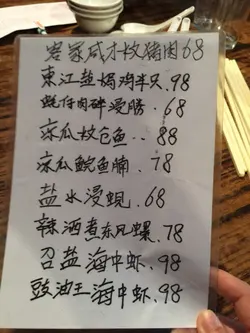 客家咸水炆猪肉68
東江盐焗鸡半只.98
蚝仔肉碎浸勝.68
凉瓜炆仓鱼..88
凉瓜鲩鱼腩.78
盐水浸蚬.68
辣酒煮东风螺.78
召盐海中虾.98
豉油王海中虾.98